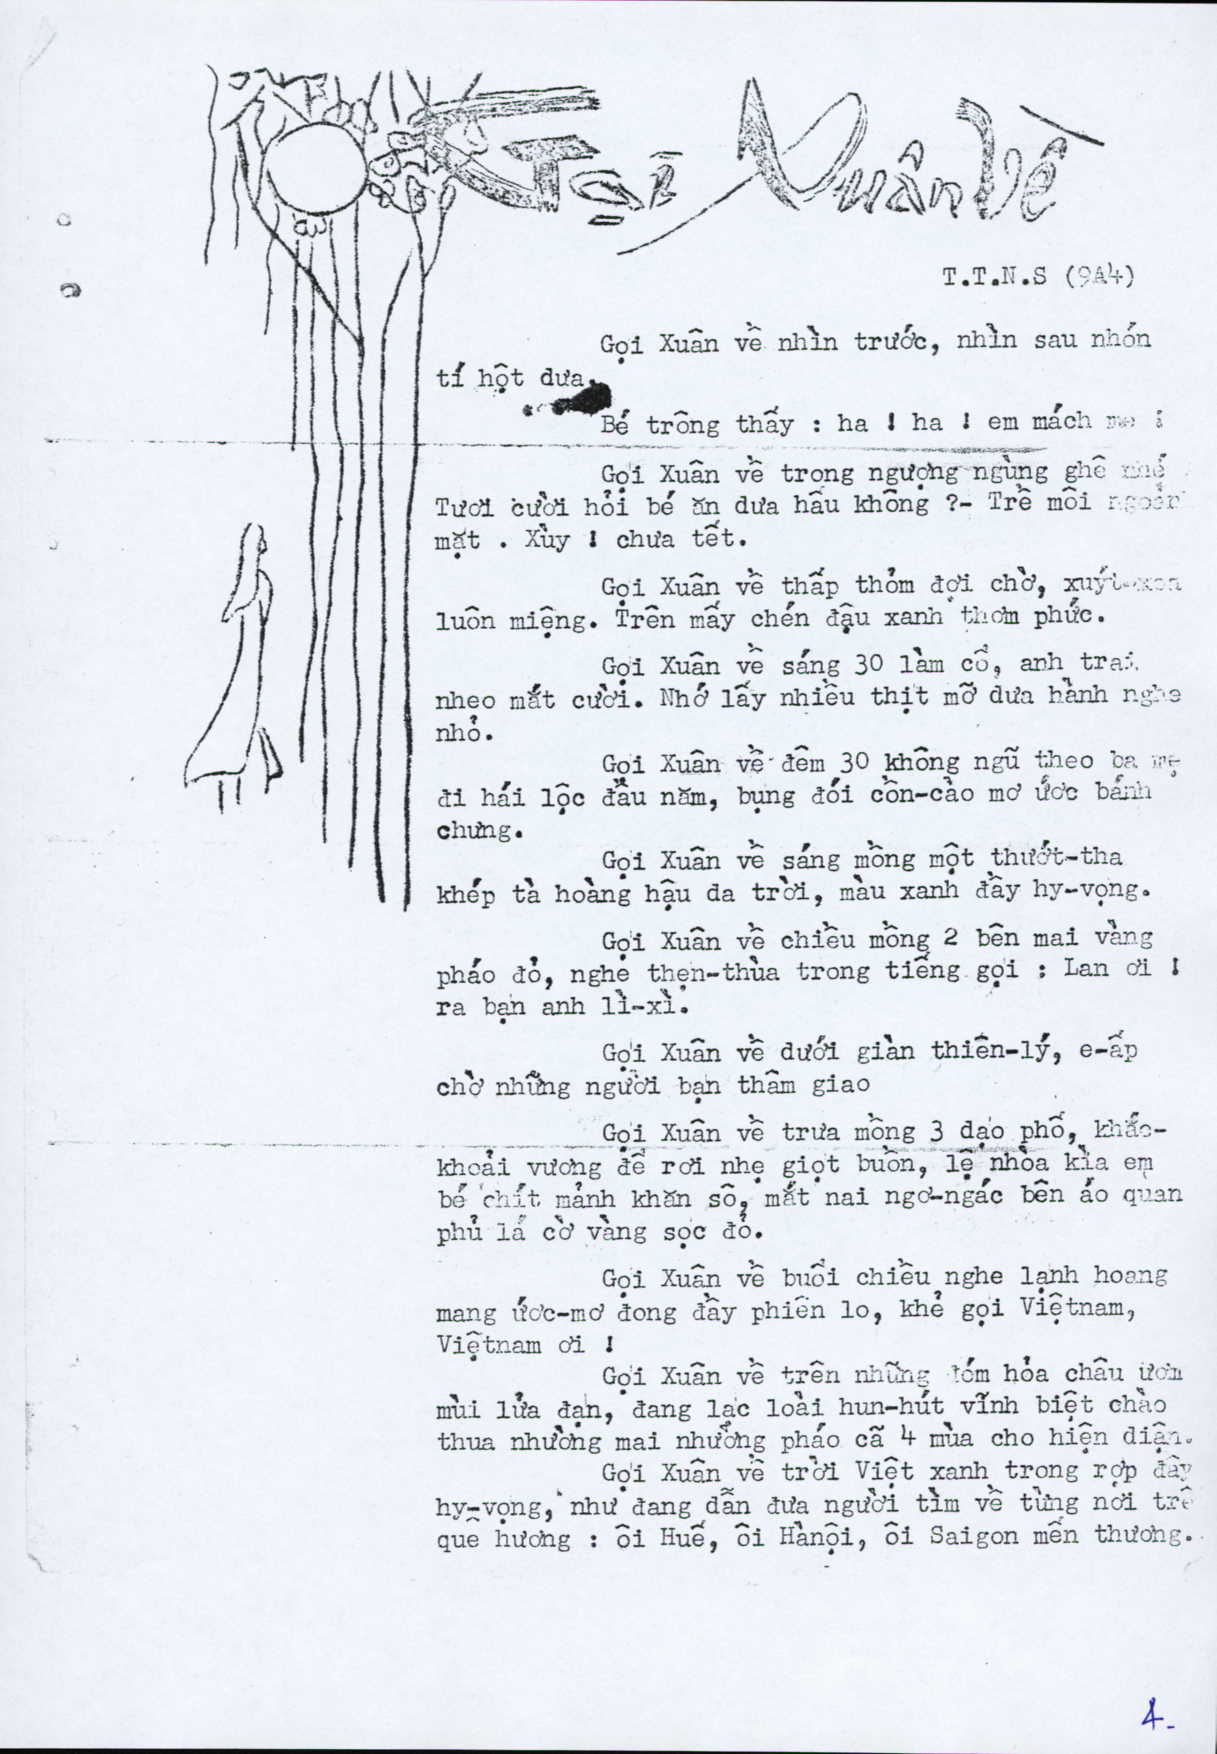 Gọi Xuân Về
T.T.N.S (9A4)
Gọi Xuân về nhìn trước, nhìn sau nhón
tí hột dưa.
Bé trông thấy : ha ! ha ! em mách mẹ !
Gọi Xuân về trong ngượng ngùng ghê nhé
Tươi cười hỏi bé ăn dưa hấu không ?- Trề môi
mặt . Xùy ! chưa tết.
Gọi Xuân về thấp thỏm đợi chờ, xuýt-xoa
luôn miệng. Trên mấy chén đậu xanh thơm phức.
Gọi Xuân về sáng 30 làm cổ, anh trai
nheo mắt cười. Nhớ lấy nhiều thịt mỡ dưa hành nghe
nhỏ.
Gọi Xuân về đêm 30 không ngũ theo ba mẹ
đi hái lộc đầu năm, bụng đói cồn-cào mơ ước bánh
chưng.
Gọi Xuân về sáng mồng một thướt-tha
khép tà hoàng hậu da trời, màu xanh đầy hy-vọng.
Gọi Xuân về chiều mồng 2 bên mai vàng
pháo đỏ, nghe thẹn-thùa trong tiếng gọi : Lan ơi !
ra bạn anh lì-xì.
Gọi Xuân về dưới giàn thiên-lý, e-ấp
chờ những người bạn thâm giao
Gọi Xuân về trưa mồng 3 dạo phố, khắc-
khoải vương để rơi nhẹ giọt buồn, lệ nhòa kìa em
bé chít mảnh khăn sô, mắt nai ngơ-ngác bên áo quan
phủ lá cờ vàng sọc đỏ.
Gọi Xuân về buổi chiều nghe lạnh hoang
mang ước-mơ đong đầy phiền lo, khẻ gọi Việtnam,
Việtnam ơi !
Gọi Xuân về trên những đóm hỏa châu ươm
mùi lửa đạn, đang lạc loài hun-hút vĩnh biệt chào
thua nhường mai nhường pháo cã 4 mùa cho hiện diện.
Gọi Xuân về trời Việt xanh trong rợp đầy
hy-vọng, như đang dẫn đưa người tìm về từng nơi trê
quê hương : ôi Huế, ôi Hànội, ôi Saigon mến thương.
4-